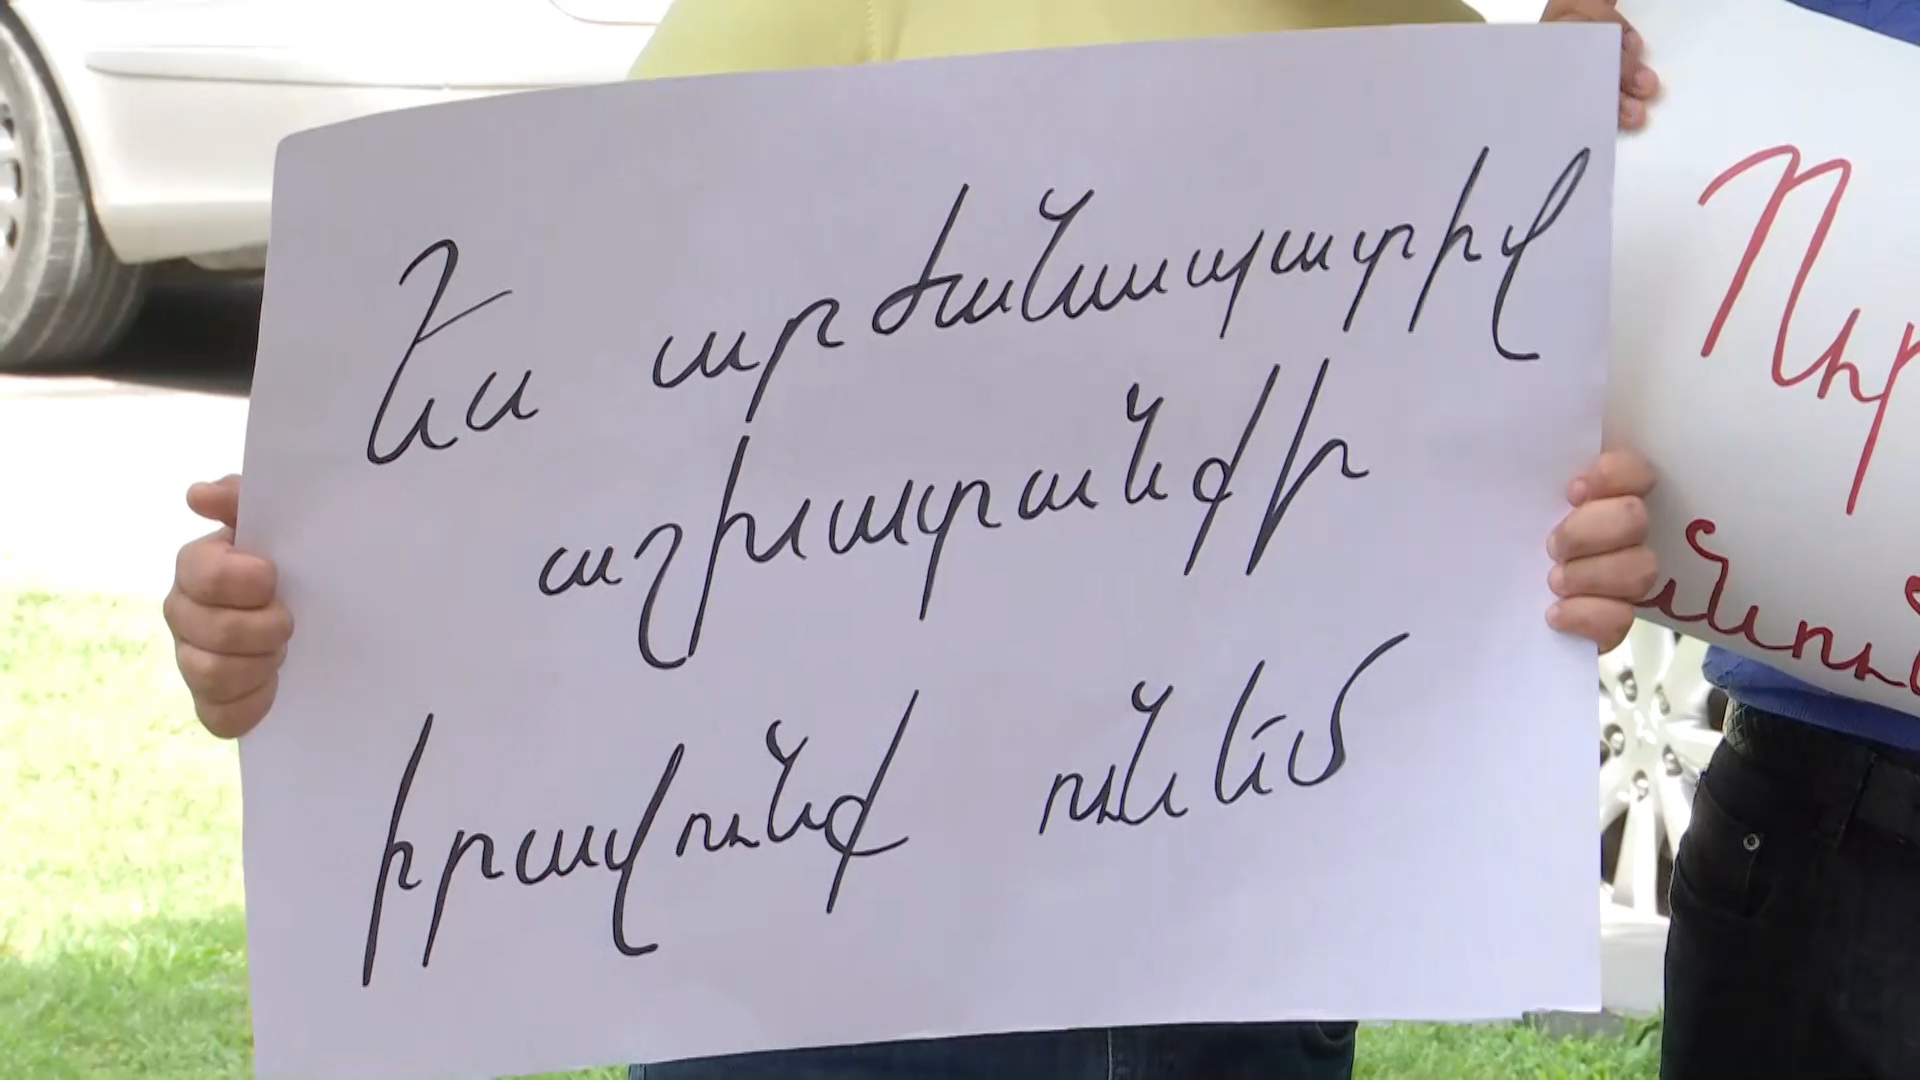 Ես արժանապատիվ
աշխատանքի
իրավունք ունեմ